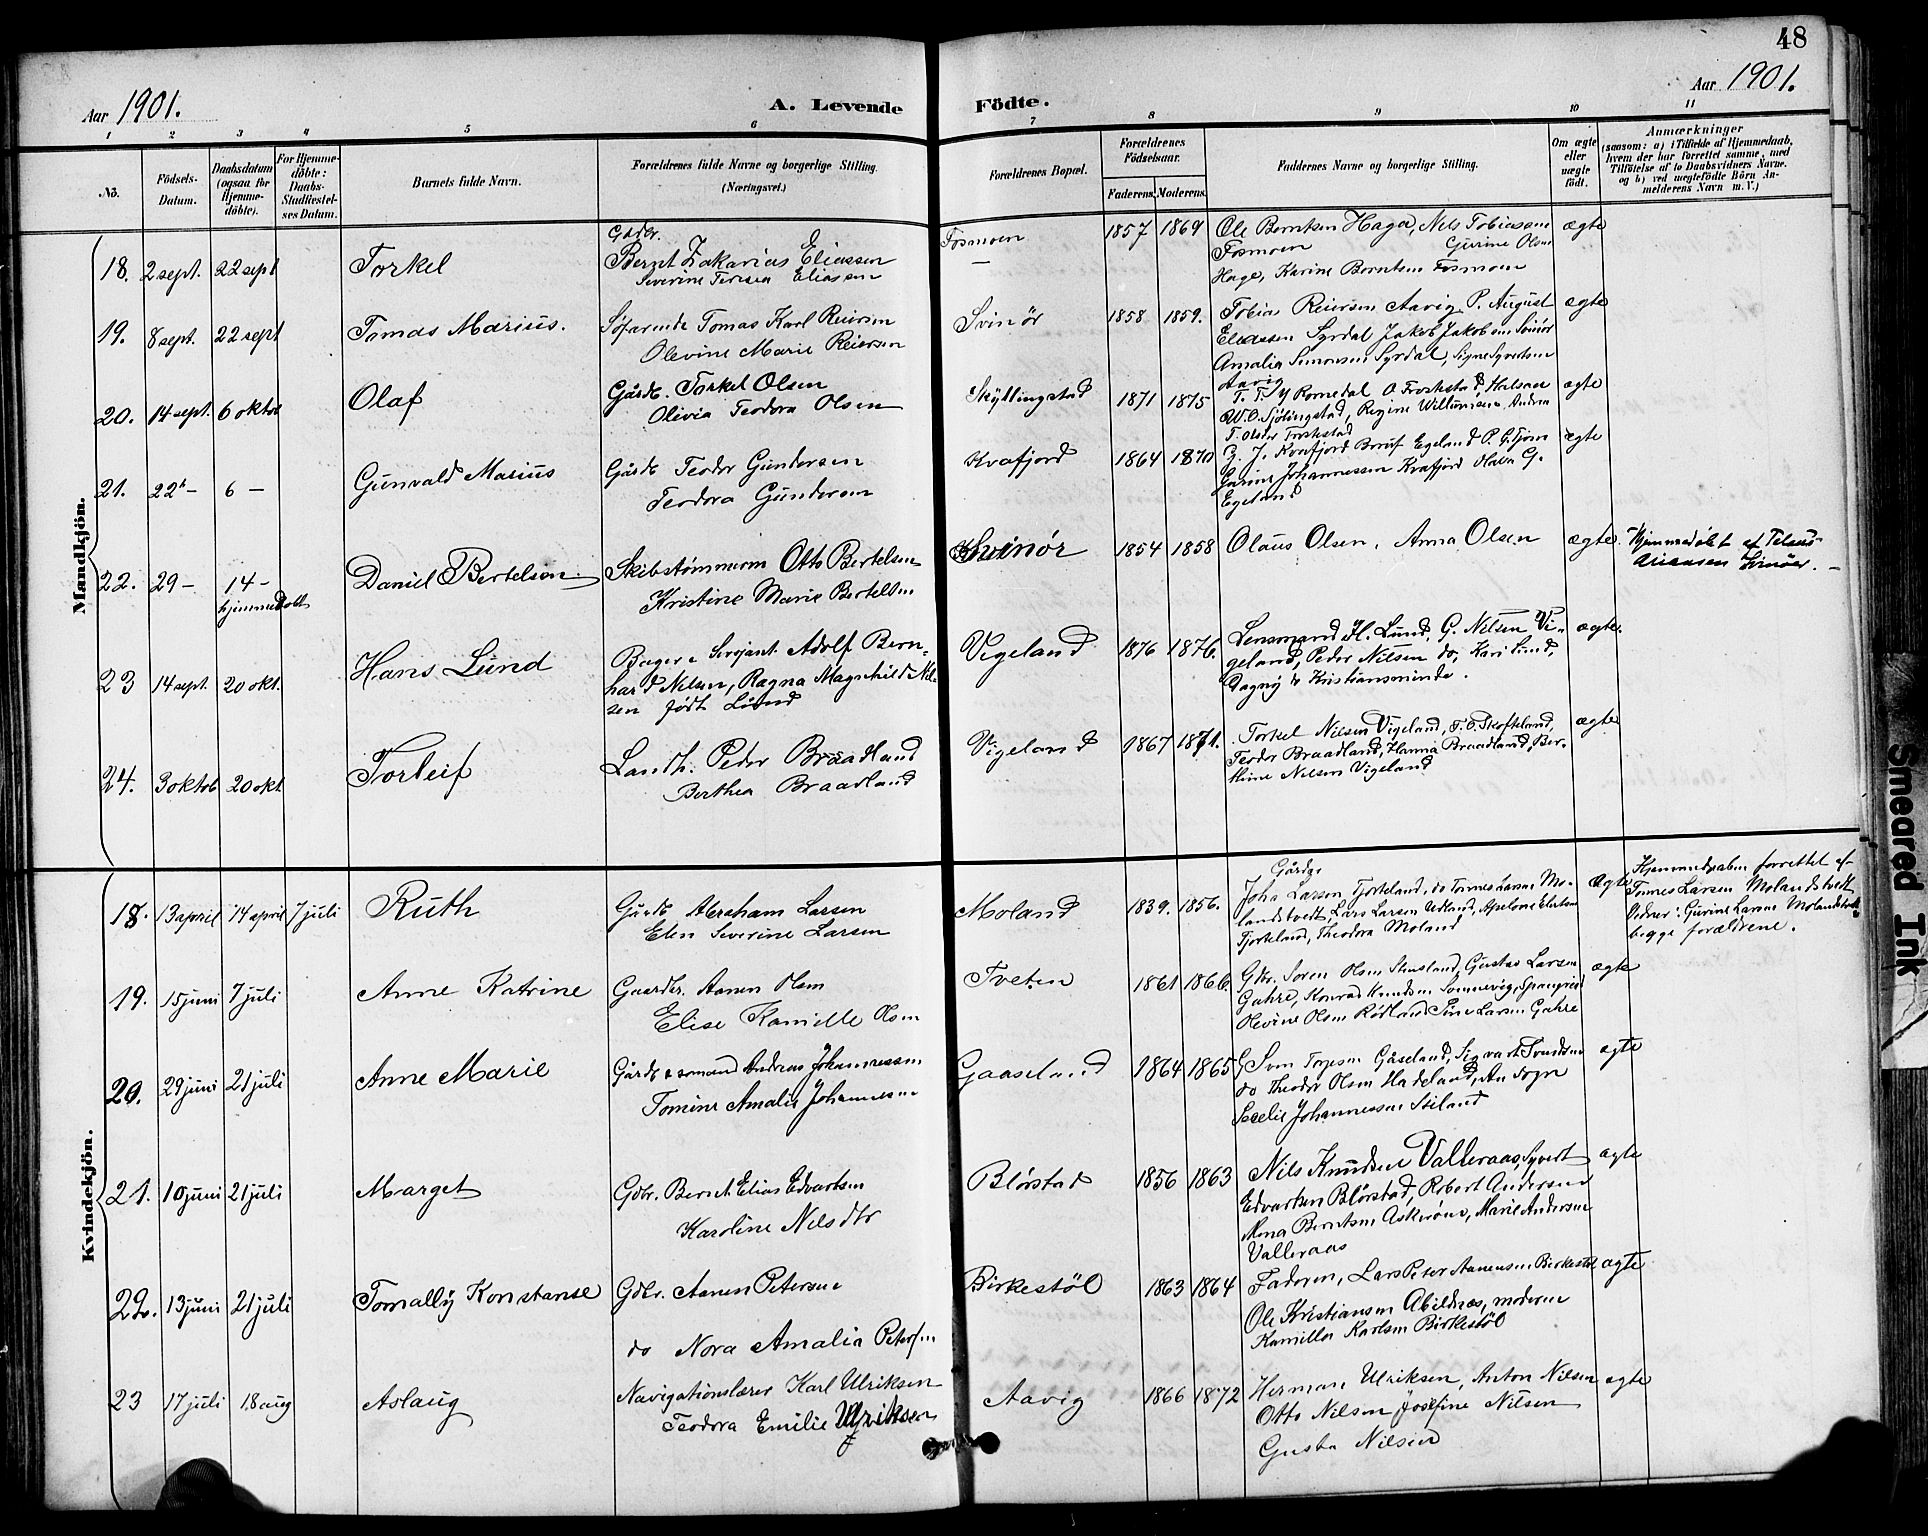 48
Aar 1901.
A. Levende Födte.
Aar 1901.
1 2 3 4 5 6 7 8 9 10 11
No.
Födsels-Datum.
Daabsdatum (ogsaa for Hjemme-döbte).
For Hjemme-döbte: Daabs-Stadfæstel-ses Datum.
Barnets fulde Navn.
Forældrenes fulde Navne og borgerlige Stilling.
(Næringsvei.)
Forældrenes Bopæl.
Forældrenes Födselsaar.
Faderens. Moderens.
Faddernes Navne og borgerlige Stilling.
Om ægte eller uægte födt.
Anmærkninger
(saasom: a) i Tilfælde af Hjemmedaab, hvem der har forrettet samme, med Tilföielse af to Daabsvidners Navne. og b) ved uægtefödte Börn Anmelderens Navn m. V.)
Mandkjön.
18. 2 sept. 22 sept Torkel
Gdbr. Bernt Zakarias Eliassen
Severine Teresea Eliasen
Fosmoen 1857 1869
Ole Berntsen Haga, Nils Tobiassen
Fosmoen Gurine Olsen
Hage, Karine Berntsen Fosmoen
ægte
19. 8 sept. 22 sept Tomas Marius.
Söfarende Tomas Karl Reiersen
Olevine Marie Reiersen
Svinör 1858 1859.
Tobias Reiersen Aavig P. August
Eliassen Syrdal Jakob Jakobsen Svinör
Amalia Simonsen Syrdal, Signe Syvertsen
Aavig
ægte
20. 14 sept. 6 oktob Olaf
Gårdb. Torkel Olsen
Olivia Teodora Olsen
Skyllingstad 1871 1875
T. T. Romedal O
W. O. Sjölingstad, Regine Andrea
T. Olsdtr
ægte
21. 22 – 6 – Gunvald Marius
Gårdb Teodor Gundersen
Teodora Gundersen
Kvafjord 1864 1870
Z. J. Kvafjord Egeland P. G. Tjom
Johannessen Kvafjord Olava G.
Egeland
ægte
22. 29 – 14 – hjemmedöbt Daniel Bertelsen
Skibstømmerm Otto Bertelsen
Kristine Marie Bertelsen
Svinör 1854 1858
Olaus Olsen, Anna Olsen
ægte.
Hjemmedöbt af
Svinöer. –
23 14 sept. 20 okt. Hans Lund
Bager & Serjant Adolf Bern-
hard Nilsen, Ragna Magnhild Nil-
sen födt Lund
Vigeland 1876 1876.
Lensmand H. Lund, G. Nilsen Vi-
geland, Peder Nilsen do, Kari Lund,
Dagny do Kristiansminde.
ægte.
24. 3 oktob 20 okt Torleif
Landh. Peder Braadland
Berthea Braadland
Vigeland 1867 1871.
Torkel Nilsen Vigeland, T. O. Skofteland,
Teodor Braadland, Hanna Braadland, Ber-
thine Nilsen Vigeland
ægte
Kvindekjön.
18. 13 april 14 april 7 juli Ruth
Gårdb Abraham Larsen
Elen Severine Larsen
Moland 1839. 1856.
Gårdbr
Joha Larsen Tjorteland, do Tönnes Larsen Mo-
landstvedt, Lars Larsen Udland,
Tjorteland, Theodora Moland
ægte
Hjemmedaaben forrettet af
Tönnes Larsen Molandstvedt
Vidner: Gurine Larsen Molandstvedt
begge forældrene.
19. 15 juni 7 juli Anne Katrine
Gaardbr. Aanen Olsen
Elise Kamille Olsen
Tveten 1861 1866.
Gdbr. Sören Olsen Gustav Larsen
Gahre, Konrad Knudsen Sönnevig, Spangreid
Olevine Olsen Rödland Sine Larsen Gahre
ægte
20. 29 juni 21 juli Anne Marie
Gårdb & sömand Andreas Johannessen
Tomine Amalie Johannesen
Gaaseland 1864 1865
G Sven Gåseland, Sigvart Svendsen
do Theodor Olsen Hadeland, Au sogn
Secelie Johannessen
ægte
21. 10 juni 21 juli Marget
Gdbr. Bernt Elias Edvartsen
Karoline Nilsdtr
Blörstad 1856 1863
Nils Knudsen Valleraas, Syvert
Edvartsen Blörstad, Robert Andersen
Mona Berntsen Askeröen, Marie Andersen
Valleraas
ægte
22. 13 juni 21 juli Tomally Konstanse
Gdbr. Aanen Petersen
do Nora Amalia Petersen
Birkestöl 1863 1864
Faderen, Lars Peter Aanensen Birkestöl
Ole Kristiansen Abildnes, moderen
Kamilla Karlsen Birkestöl
ægte
23 17 juli 18 aug Aslaug
Navigationslærer Karl Ulriksen
Teodora Emilie Ulriksen
Aavig 1866 1872
Herman Ulriksen, Anton Nilsen
Otto Nilsen Josefine Nilsen
Gusta Nilsen
ægte
Smeared Ink